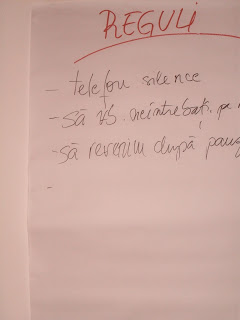 REGULI
- telefon silence
- să vb. neîntrebați, pe
- să revenim după pauz
-